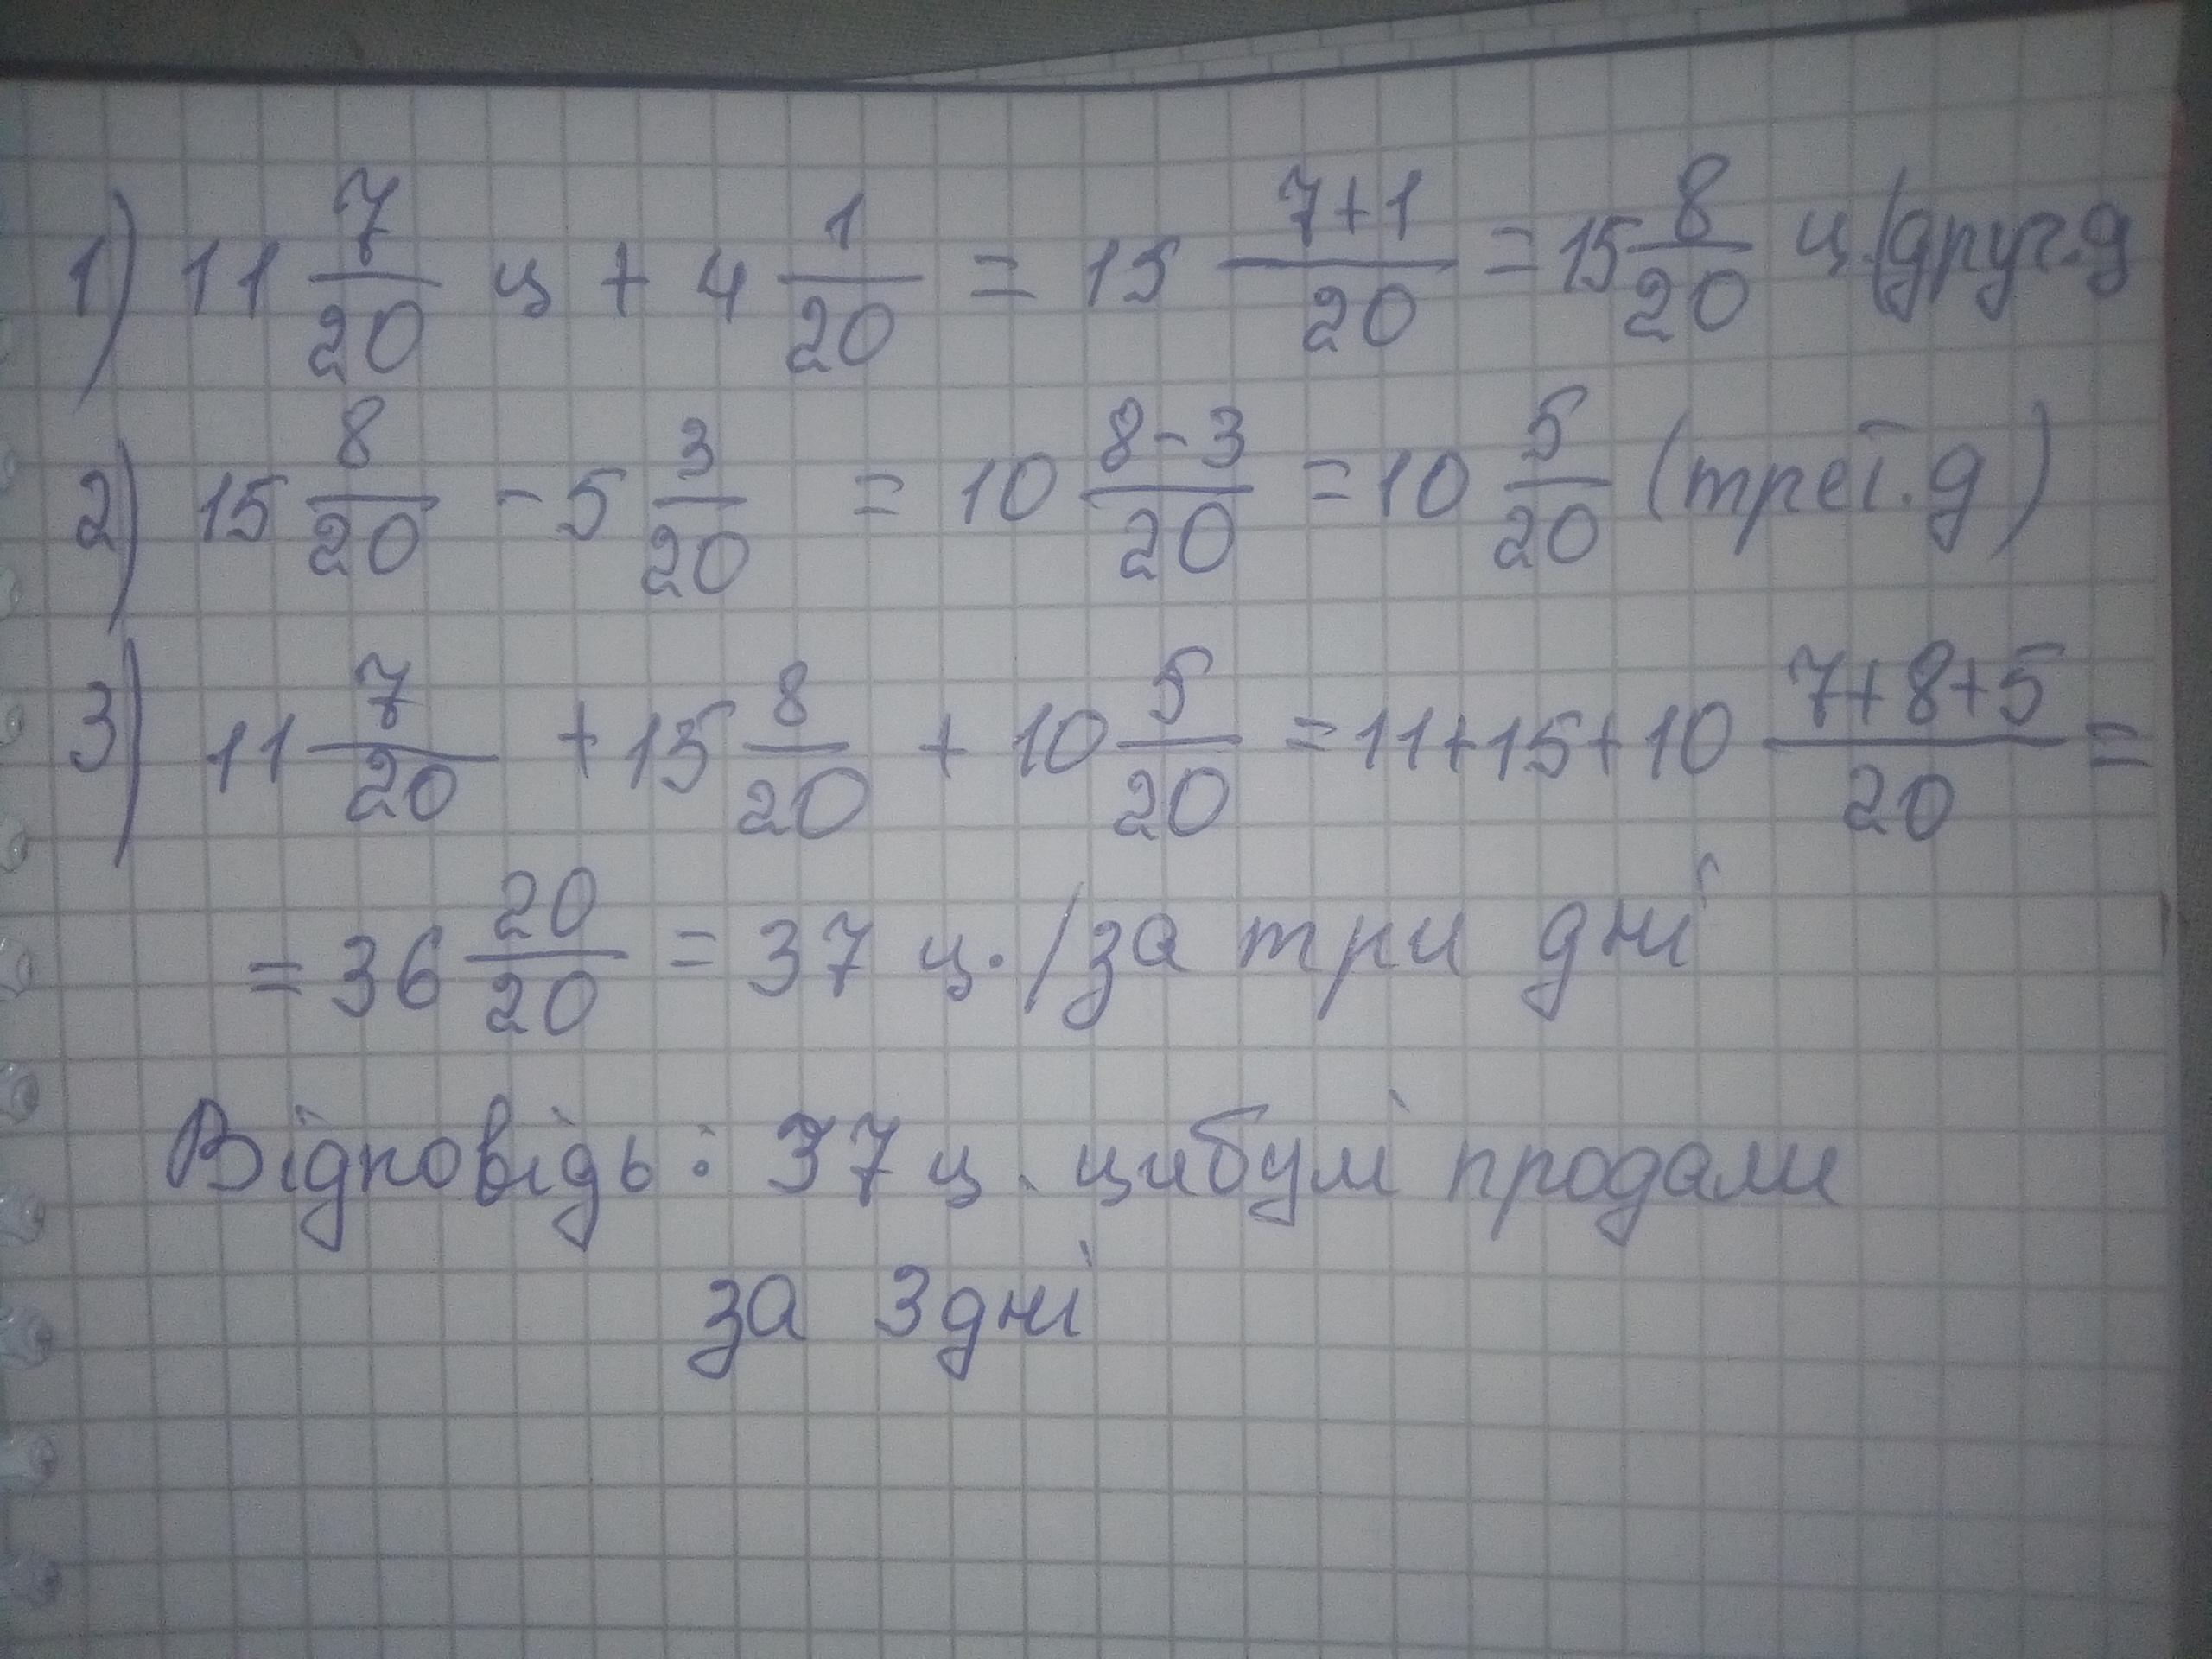 1) 11 7/20 ц + 4 1/20 = 15 7+1/20 = 15 8/20 ц.(друг.д
2) 15 8/20 - 5 3/20 = 10 8-3/20 = 10 5/20 (треї.д)
3) 11 7/20 + 15 8/20 + 10 5/20 = 11+15+10 7+8+5/20 =
= 36 20/20 = 37 ц./за три дні
Відповідь: 37 ц. цибулі продали
за 3 дні